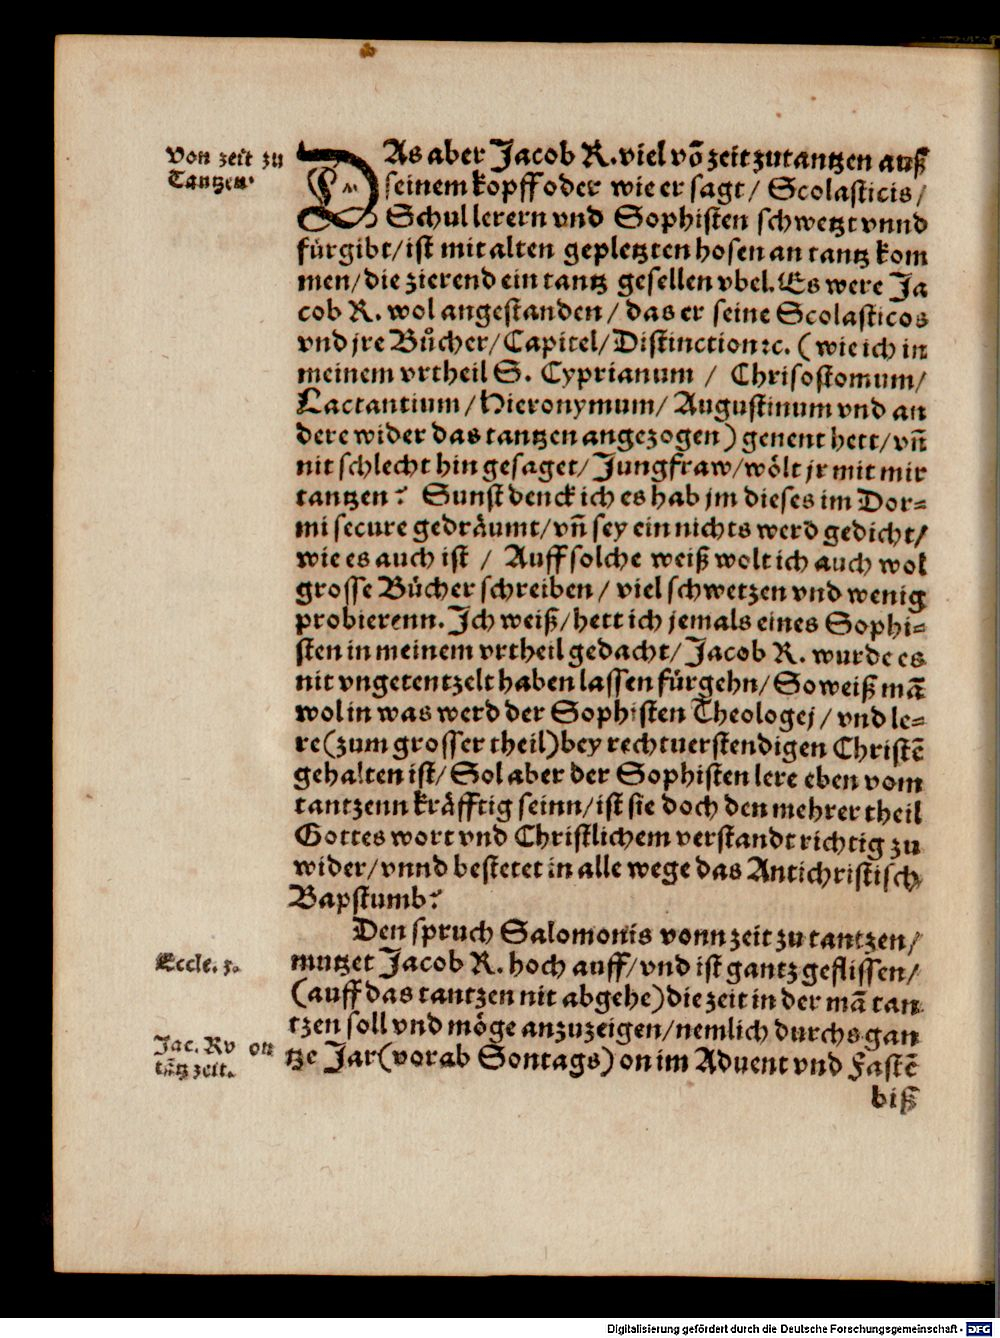 Von zeit zu
Tantzen.
DAs aber Jacob R. viel võ zeit zu tantzen auß
seinem kopff oder wie er sagt / Scolasticis /
Schullerern vnd Sophisten schwetzt vnnd
fürgibt / ist mit alten gepletzten hosen an tantz kom
men / die zierend ein tantz gesellen vbel. Es were Ja
cob R. wol angestanden / das er seine Scolasticos
vnd jre Bůcher / Capitel / Distinction ꝛc. ( wie ich in
meinem vrtheil S. Cyprianum / Chrisostomum /
Lactantium / Hieronymum / Augustinum vnd an
dere wider das tantzen angezogen ) genent hett / vñ
nit schlecht hin gesaget / Jungfraw / wölt jr mit mir
tantzen? Sunst denck ich es hab jm dieses im Dor=
mi secure gedräumt / vñ sey ein nichts werd gedicht /
wie es auch ist / Auff solche weiß wolt ich auch wol
grosse Bůcher schreiben / viel schwetzen vnd wenig
probierenn. Ich weiß / hett ich jemals eines Sophi=
sten in meinem vrtheil gedacht / Jacob R. wurde es
nit vngetentzelt haben lassen fürgehn / So weiß mã
wol in was werd der Sophisten Theologej / vnd le=
re (zum grosser theil) bey rechtuerstendigen Christẽ
gehalten ist / Sol aber der Sophisten lere eben vom
tantzenn kräfftig seinn / ist sie doch den mehrer theil
Gottes wort vnd Christlichem verstandt richtig zu
wider / vnnd bestetet in alle wege das Antichristisch
Bapstumb?
Den spruch Salomonis vonn zeit zu tantzen /
Eccle. 3.
mutzet Jacob R. hoch auff / vnd ist gantz geflissen /
(auff das tantzen nit abgehe) die zeit in der mã tan
tzen soll vnd möge anzuzeigen / nemlich durchs gan
Jac. Rv on
tãtz zeit.
tze Jar (vorab Sontags) on im Aduent vnd Fastẽ
biß
Digitalisierung gefördert durch die Deutsche Forschungsgemeinschaft - DFG